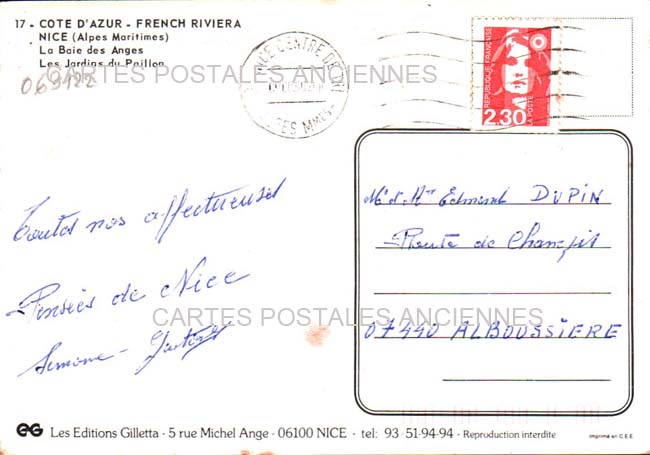 17 - COTE D'AZUR - FRENCH RIVIERA
NICE (Alpes Maritimes)
La Baie des Anges
Les Jardins du Paillon
069122
CARTES POSTALES ANCIENNES
NICE CENTRE
REPUBLIQUE FRANCAISE
LA POSTE
2.30
Toutes nos affectueuses
Pensées de Nice
Simone -
Mr et Mme Edmond DUPIN
Route de
07440 ALBOUSSIERE
CARTES POSTALES ANCIENNES
EG Les Editions Gilletta - 5 rue Michel Ange - 06100 NICE - tel: 93-51-94-94 - Reproduction interdite
imprimé en C.E.E.